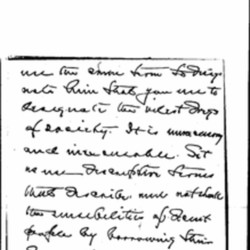 me the
note him that you use to
designate the vilest dregs
of society. It is unnecessary
and inexcusable. Let
us use descriptive terms
that describe and not shock
the sensibilities of decent
people by borrowing